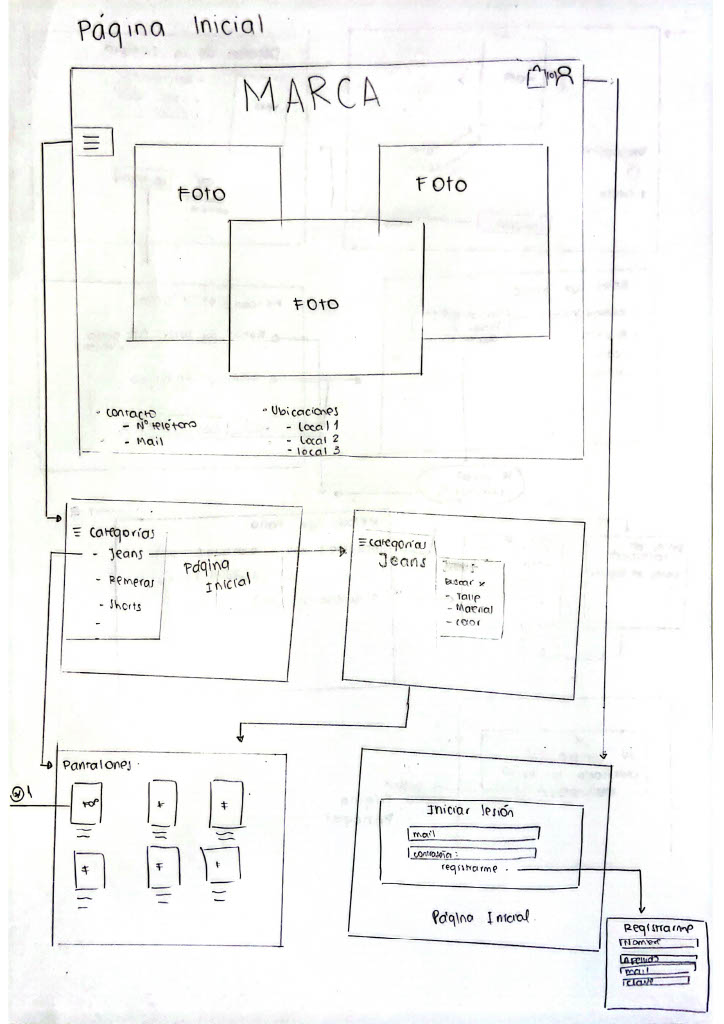 Página Inicial
MARCA
(0)
FOTO
FOTO
FOTO
- Contacto
- N° teléfono
- Mail
- Ubicaciones
- Local 1
- Local 2
- local 3
Categorías
- Jeans
- Remeras
- Shorts
-
Página
Inicial
Categorías
Jeans
Buscar x
- Talle
- Material
- Color
Pantalones
1
Iniciar Sesión
mail
contraseña:
registrarme
Página Inicial
Registrarme
Nombre
Apellido
mail
clave